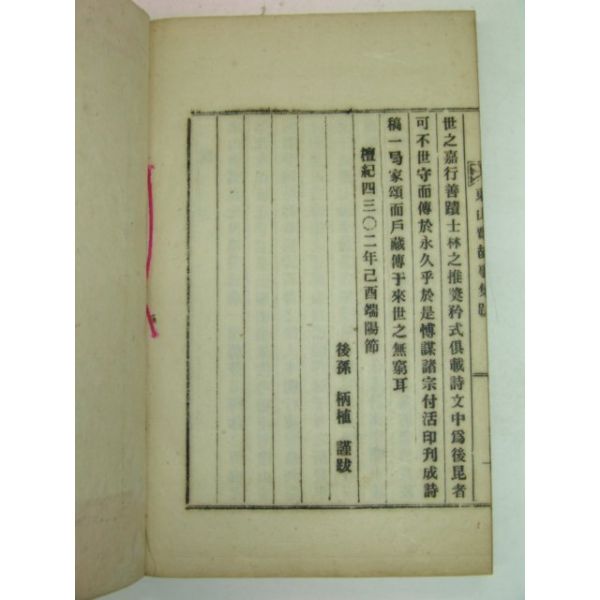 世之嘉行善蹟士林之推奬矜式俱載詩文中爲後昆者
可不世守而傳於永久乎於是博謀諸宗付活印刊成詩
稿一局家頌而戶藏傳于來世之無窮耳
檀紀四三〇二年己酉端陽節
後孫 柄植 謹跋